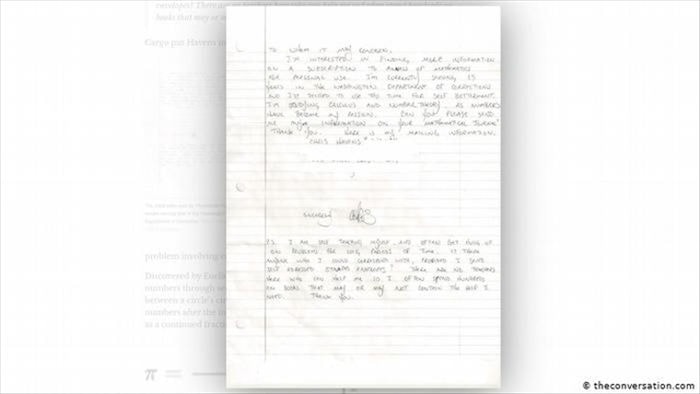 envelopes!
books that may or
Cargo put Havens in
TO WHOM IT MAY CONCERN,
I'M INTERESTED IN FINDING MORE INFORMATION
ON A SUBSCRIPTION TO ANNALS OF MATHEMATICS
FOR PERSONAL USE. I'M CURRENTLY SERVING 25
YEARS IN THE WASHINGTON DEPARTMENT OF CORRECTIONS
AND I'VE DECIDED TO USE THIS TIME FOR SELF BETTERMENT.
I'M STUDYING CALCULUS AND NUMBER THEORY, AS NUMBERS
HAVE BECOME MY MISSION. CAN YOU PLEASE SEND
ME ANY INFORMATION ON YOUR MATHEMATICAL JOURNAL?
THANK YOU. HERE IS MY MAILING INFORMATION.
CHRIS HAVENS
SINCERELY
P.S. I AM SELF TEACHING MYSELF AND OFTEN GET HUNG UP
ON PROBLEMS FOR LONG PERIODS OF TIME. IS THERE
ANYONE WHO I COULD CORRESPOND WITH, PROVIDED I SEND
SELF ADDRESSED STAMPED ENVELOPES? THERE ARE NO TEACHERS
HERE WHO CAN HELP ME SO I OFTEN SPEND HUNDREDS
ON BOOKS THAT MAY OR MAY NOT CONTAIN THE HELP I
NEED. THANK YOU.
problem involving
Discovered by Eucl
numbers through se
between a circle's cir
numbers after the
as a continued fract
π =
© theconversation.com